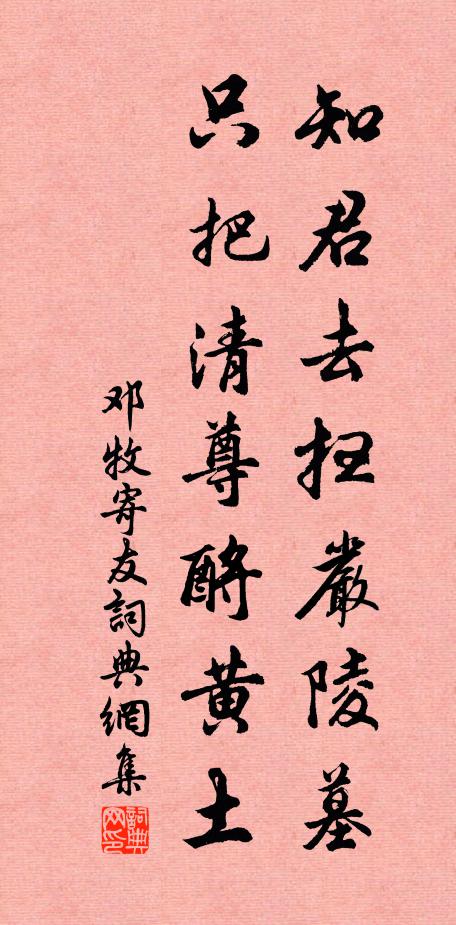 知君去扫嚴陵墓
只把清尊酹黄土
邓牧寄友詞典網集
詞典网印